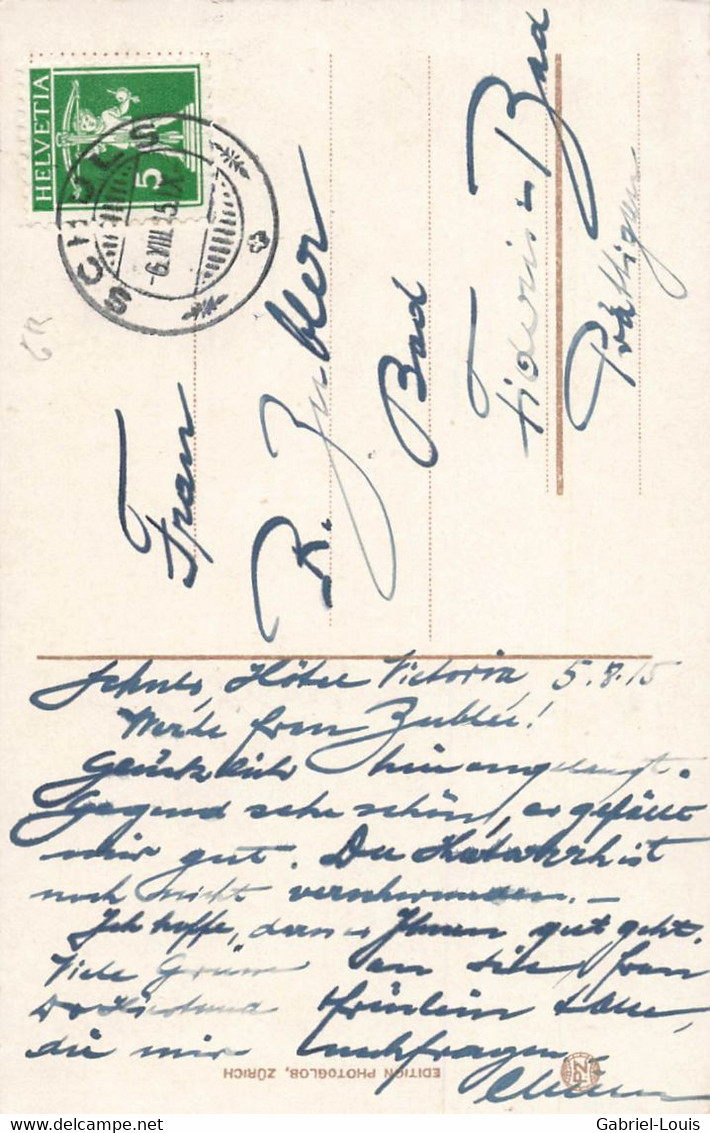 HELVETIA
5
SCHULS
-6.VIII.15.IX-
Frau
R. Zubler
Bad
Fideris-Bad
Prättigau
Schuls, Hôtel Victoria, 5.8.15
Werte Frau Zubler!
Glücklich hier angelangt.
Gegend sehr schön, es gefällt
mir gut. Der Katarrh ist
noch nicht verschwunden. –
Ich hoffe, dass es Ihnen gut geht.
Viele Grüsse an Sie, Frau
Fräulein
die mir nachfragen
EDITION PHOTOGLOB, ZÜRICH
PZ
Gabriel-Louis